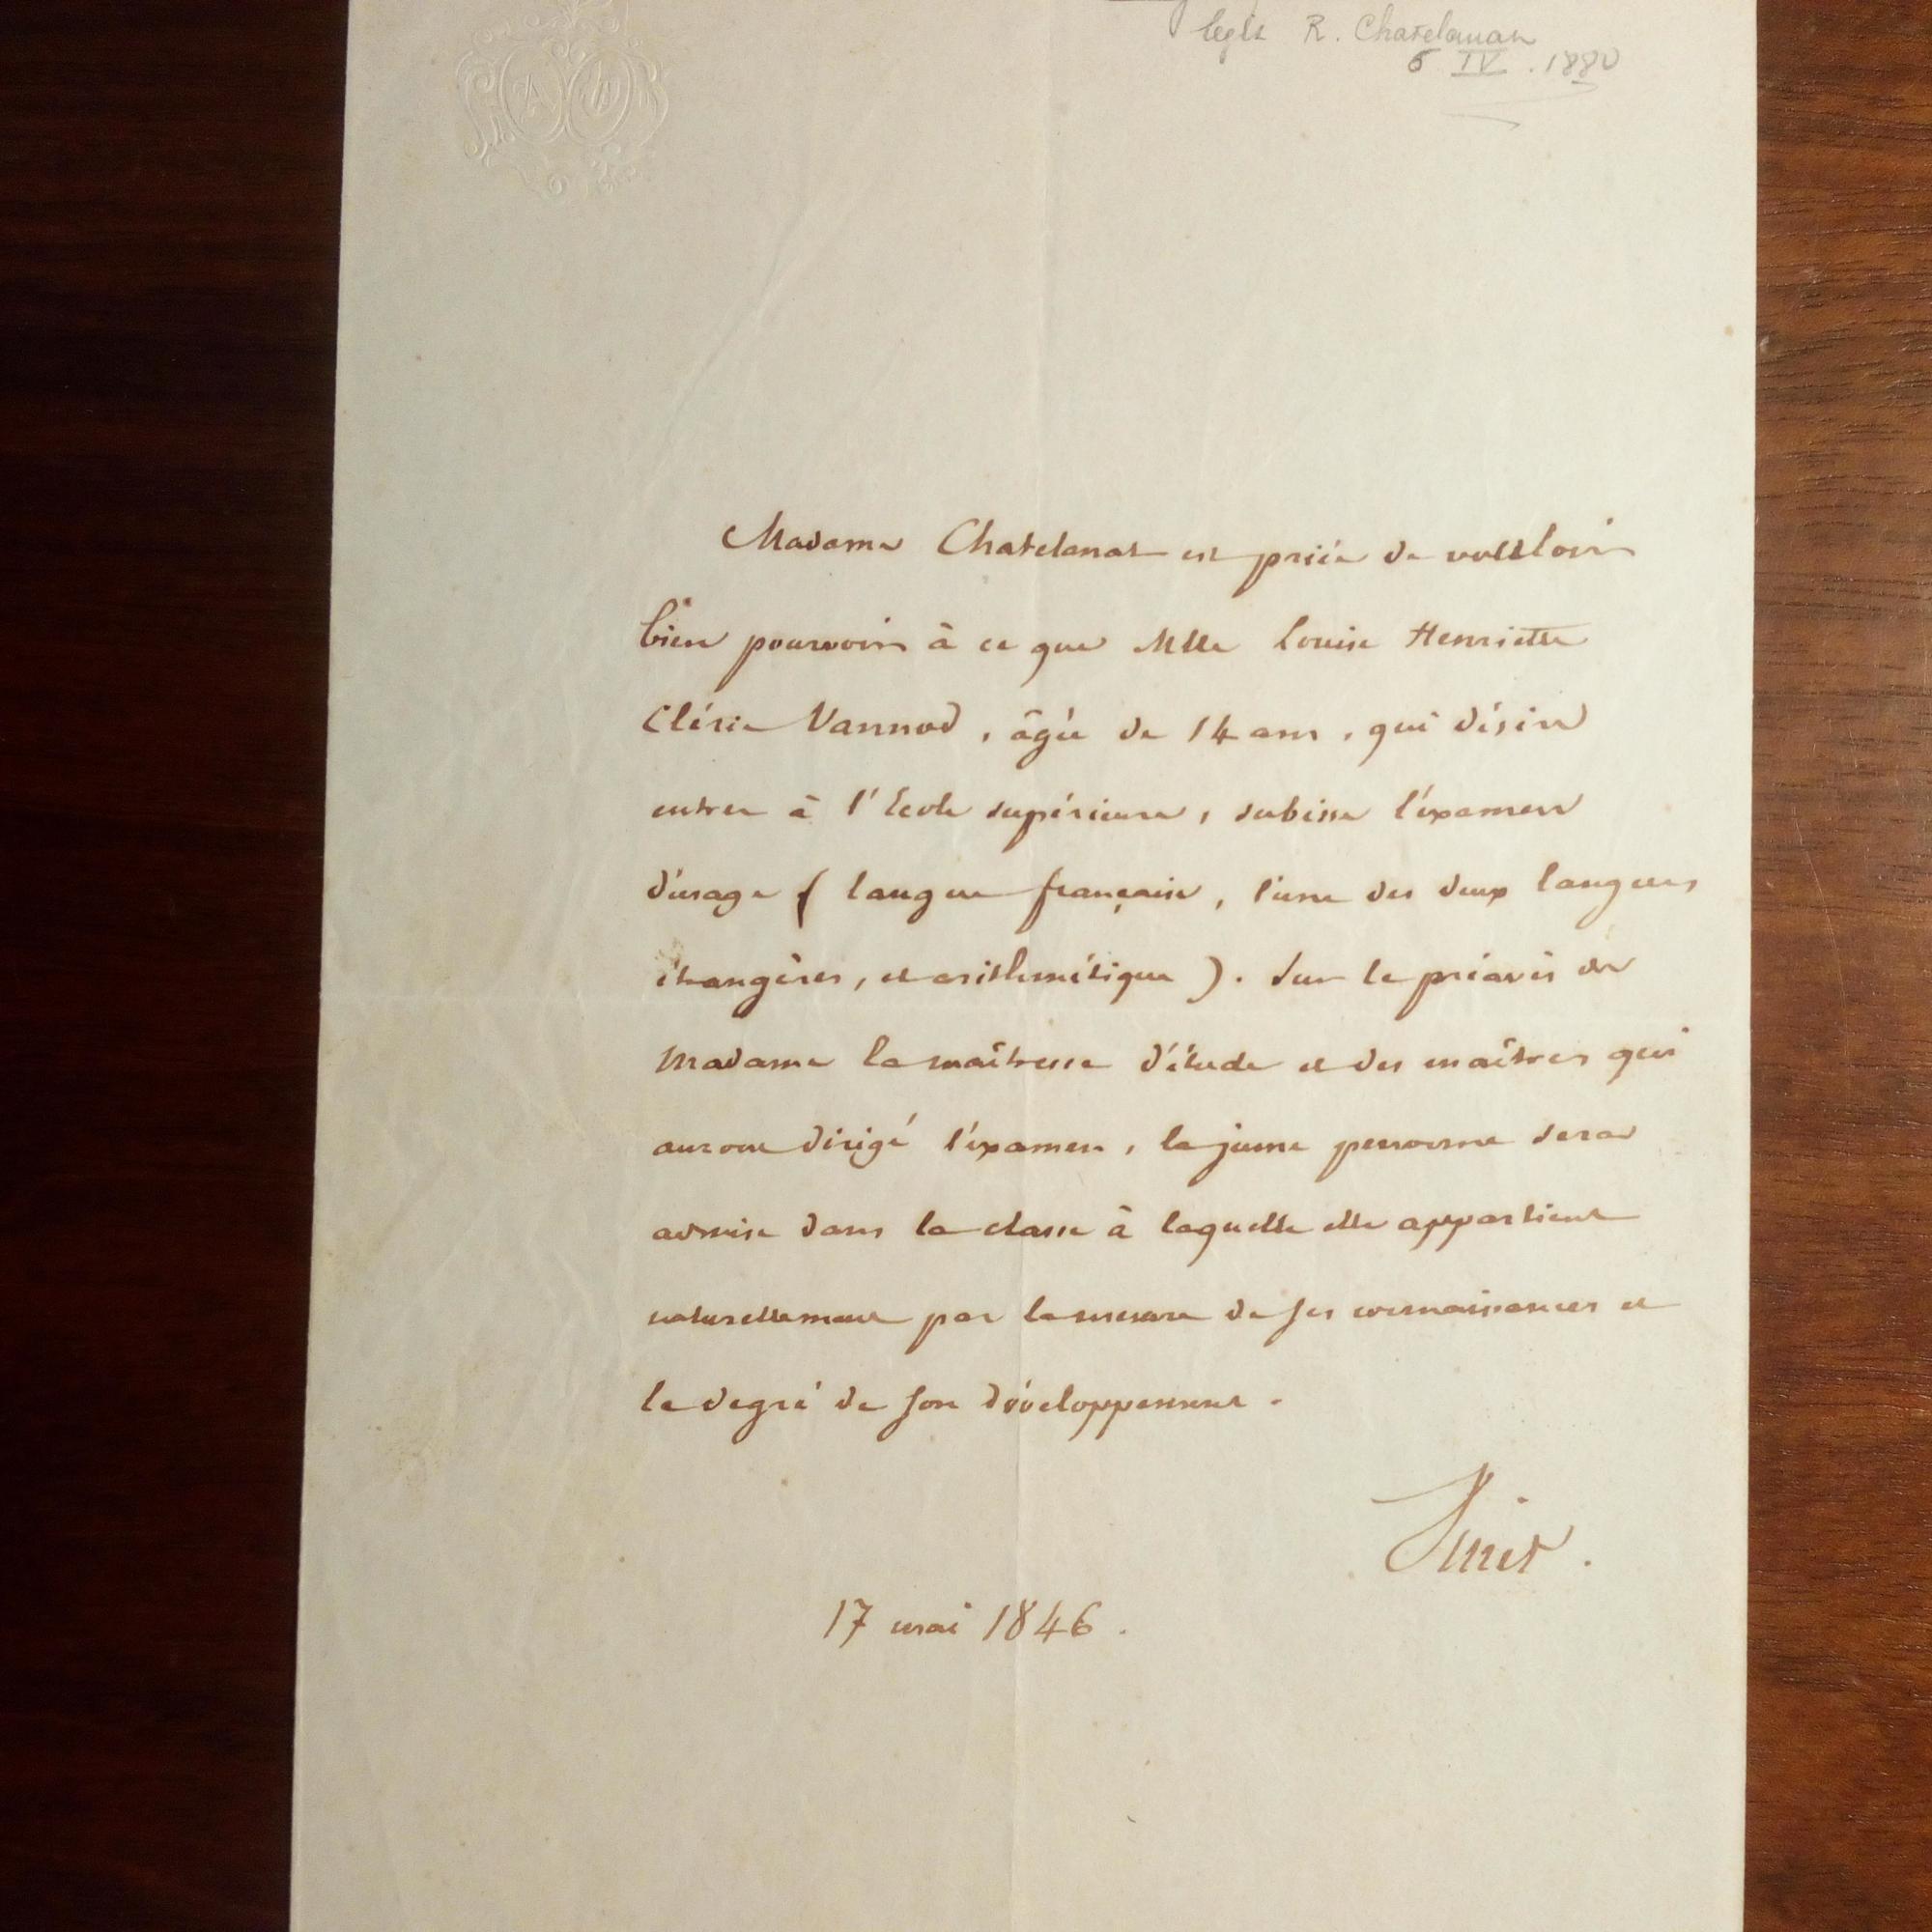 legs R. Chatelanat
6 IV. 1880
A V
Madame Chatelanat est priée de vouloir
bien pourvoir à ce que Mlle Louise Henriette
Clérie Vannod, âgée de 14 ans, qui désire
entrer à l'Ecole supérieure, subisse l'éxamen
d'usage (langue française, l'une des deux langues
étrangères, et arithmétique). Sur le préavis de
Madame la maîtresse d'étude et des maîtres qui
auront dirigé l'éxamen, la jeune personne sera
admise dans la classe à laquelle elle appartient
naturellement par la mesure de ses connaissances et
le degré de son développement.
Vinet.
17 mai 1846.